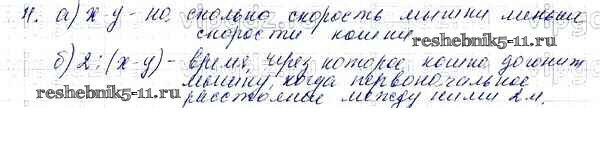 4. а) x-y - на сколько скорость мышки меньше
скорости кошки.
reshebnik5-11.ru
б) 2:(x-y) - время, через которое кошка догонит
мышку, когда первоначальное
reshebnik5-11.ru
расстояние между ними 2 м.